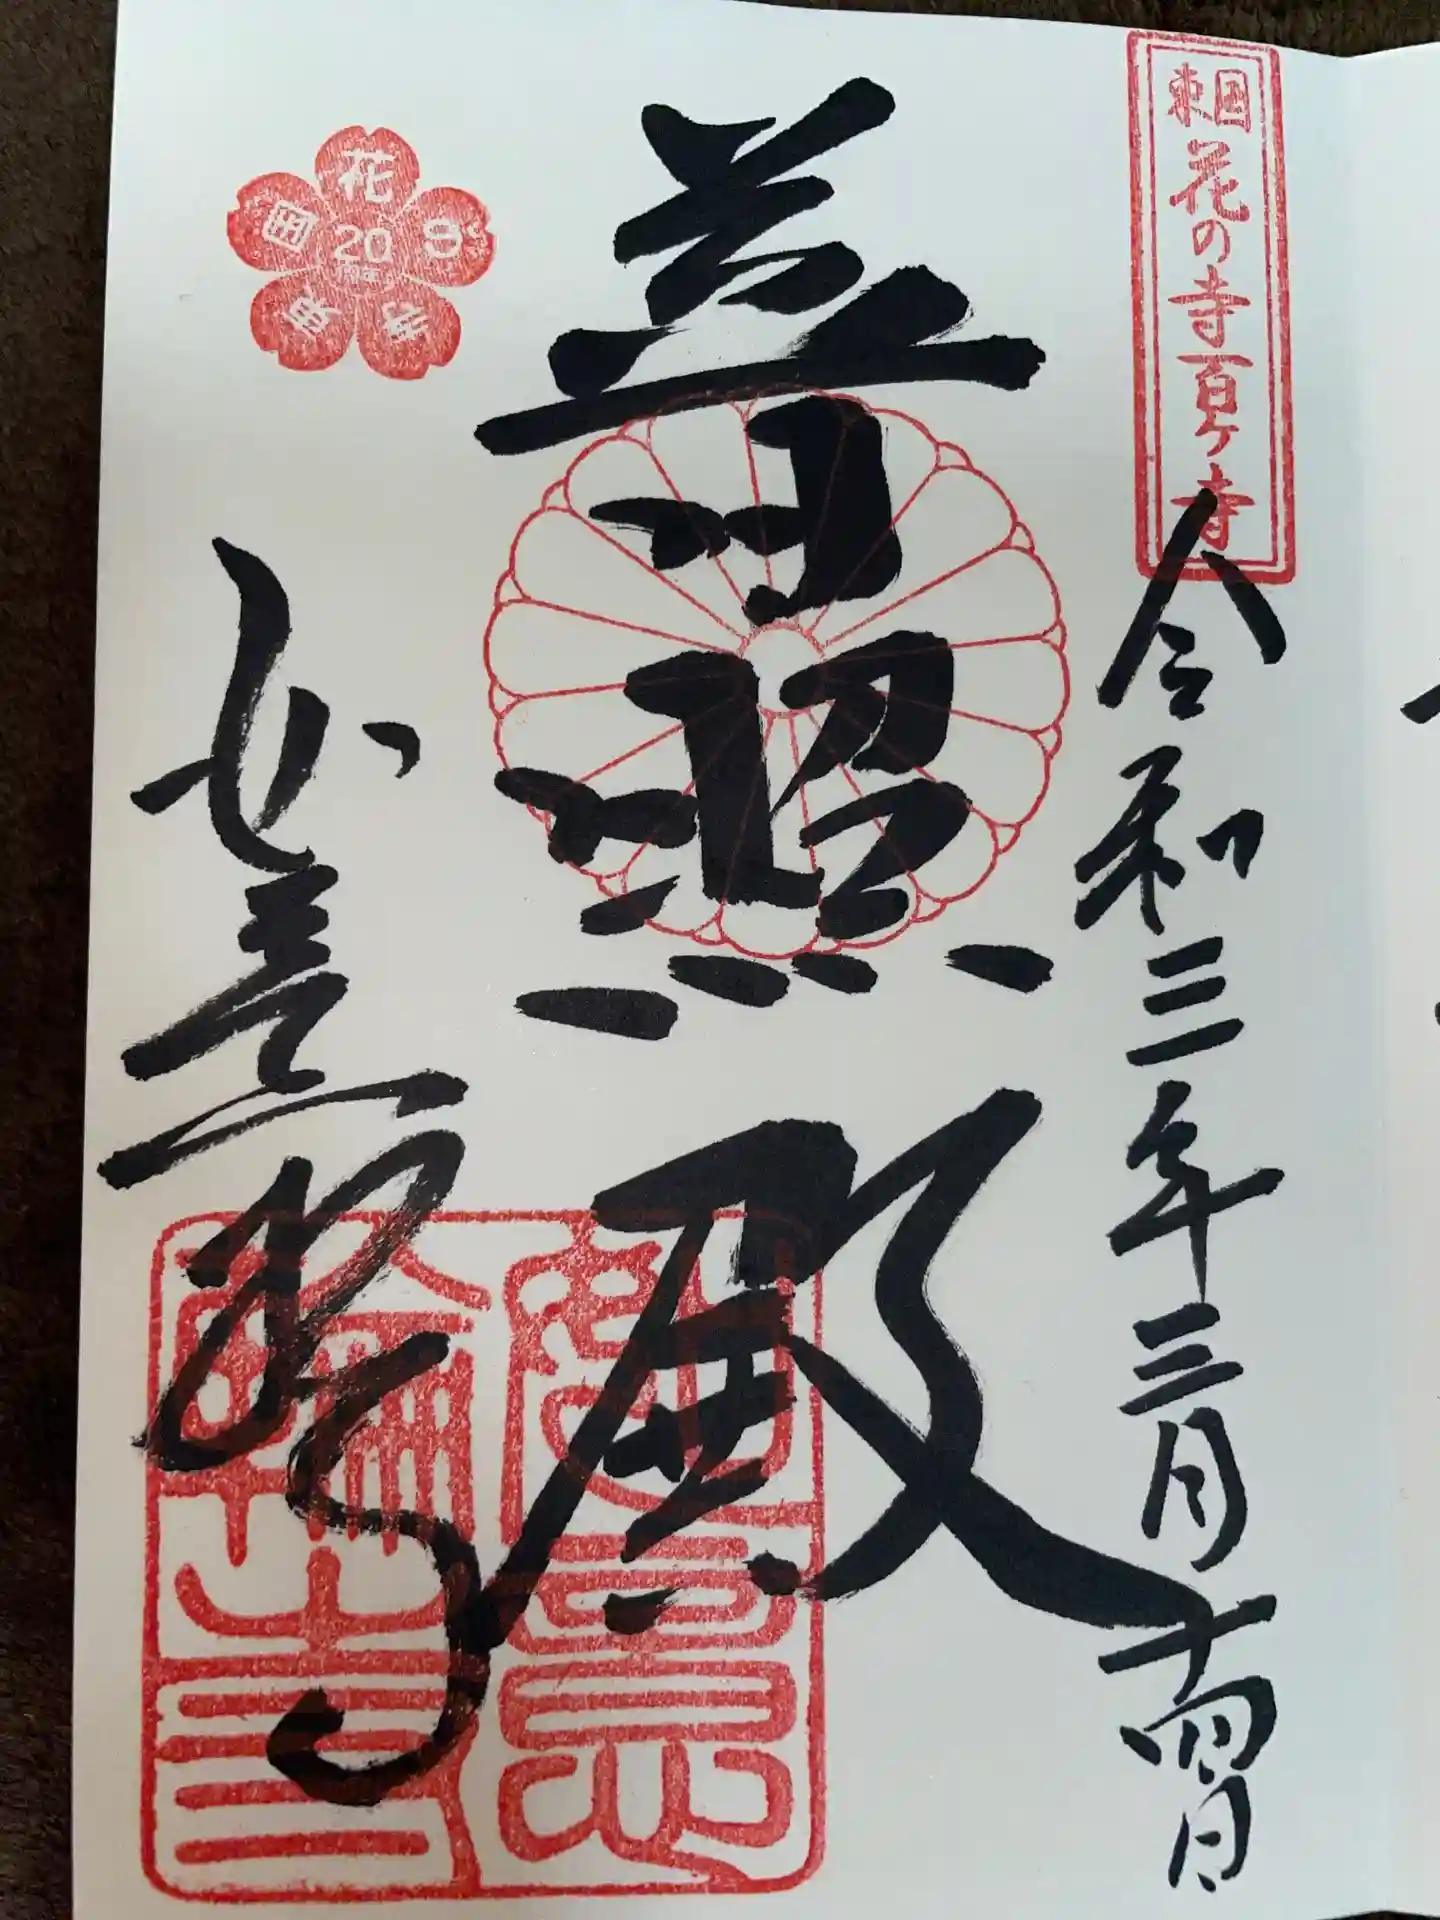 東国花の寺百ヶ寺
令和三年三月十四日
普照殿
東国花の寺
20
周年
如意輪寺